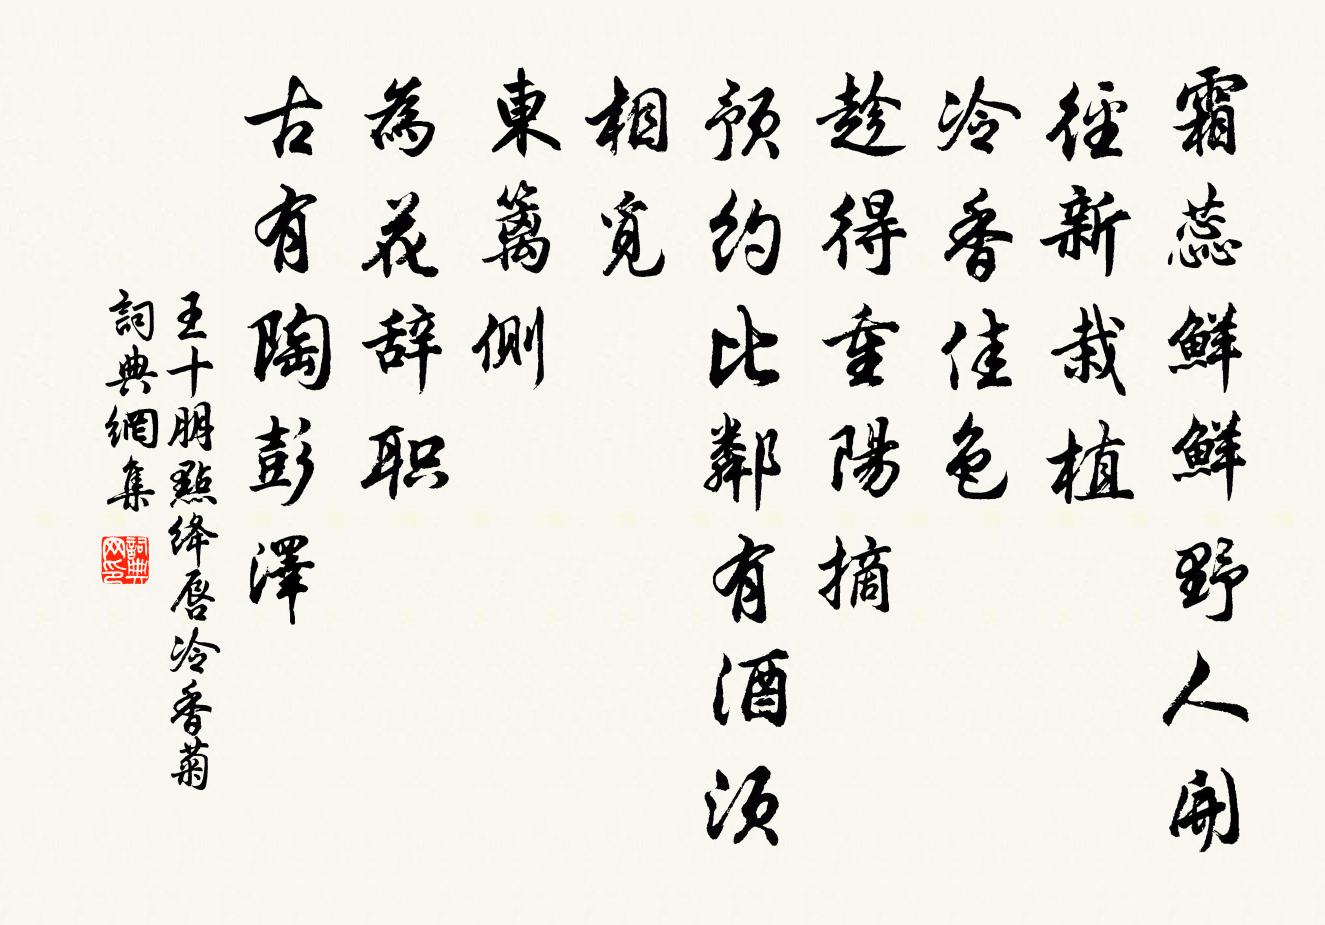 霜蕊鮮鮮野人開
徑新栽植
冷香佳色
趁得重陽摘
預約比鄰有酒須
相覓
東籬側
為花辞职
古有陶彭澤
王十朋點绛唇冷香菊
詞典網集
詞典网印